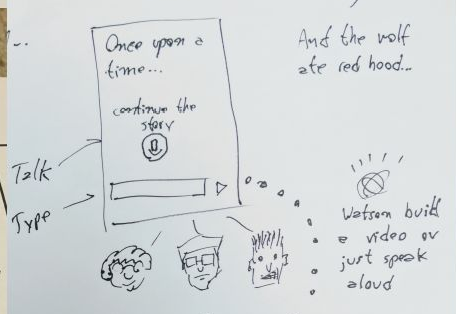 Once upon a
time...
continue the
story
Talk
Type
And the wolf
ate red hood...
Watson build
a video or
just speak
aloud